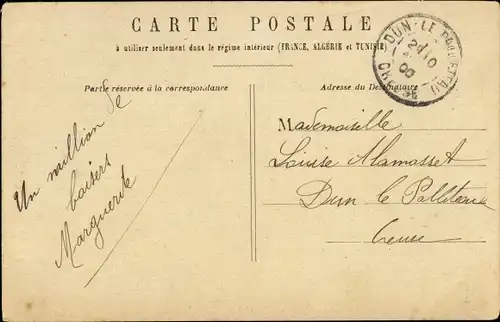 CARTE POSTALE
à utiliser seulement dans le régime intérieur (FRANCE, ALGÉRIE et TUNISIE)
Partie réservée à la correspondance
Adresse du Destinataire
DUN-LE
CREUSE
Un million de
baisers
Marguerite
Mademoiselle
Louise Alamasset
Dun le Palleteau
Creuse